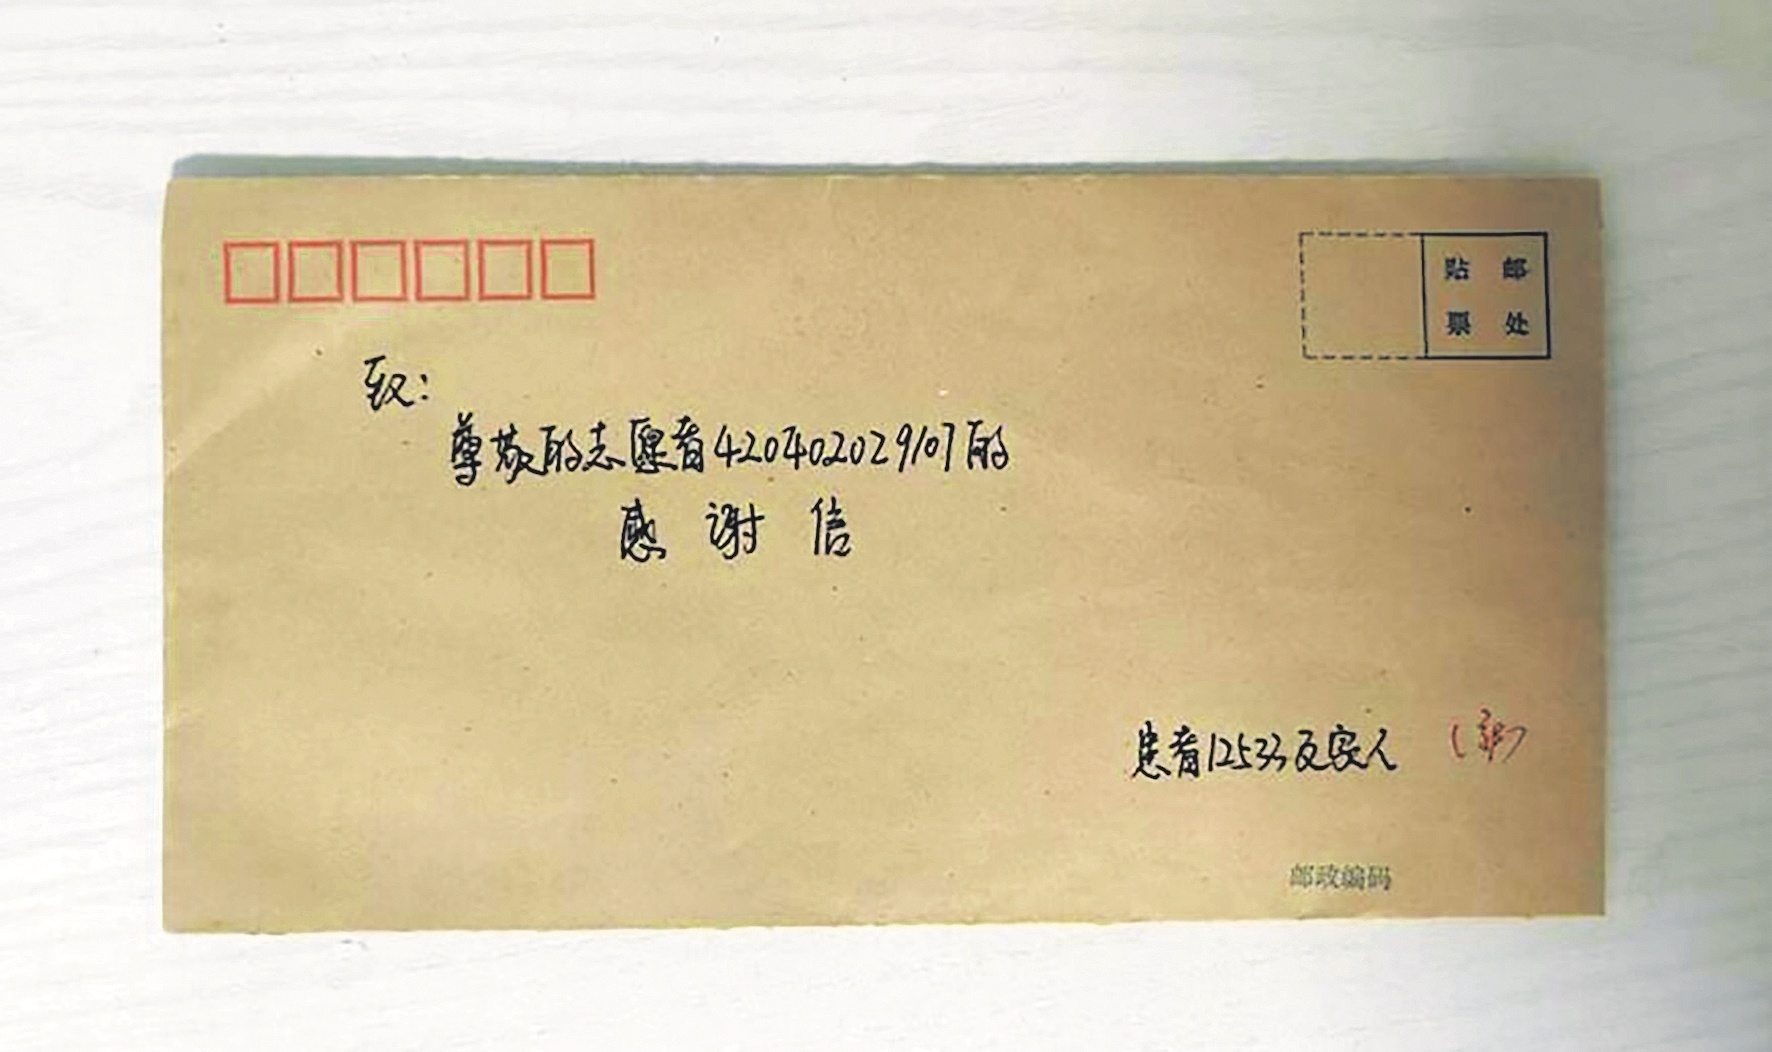 贴 邮
票 处
致：
尊敬的志愿者420402029107的
感谢信
患者12533及家人
邮政编码